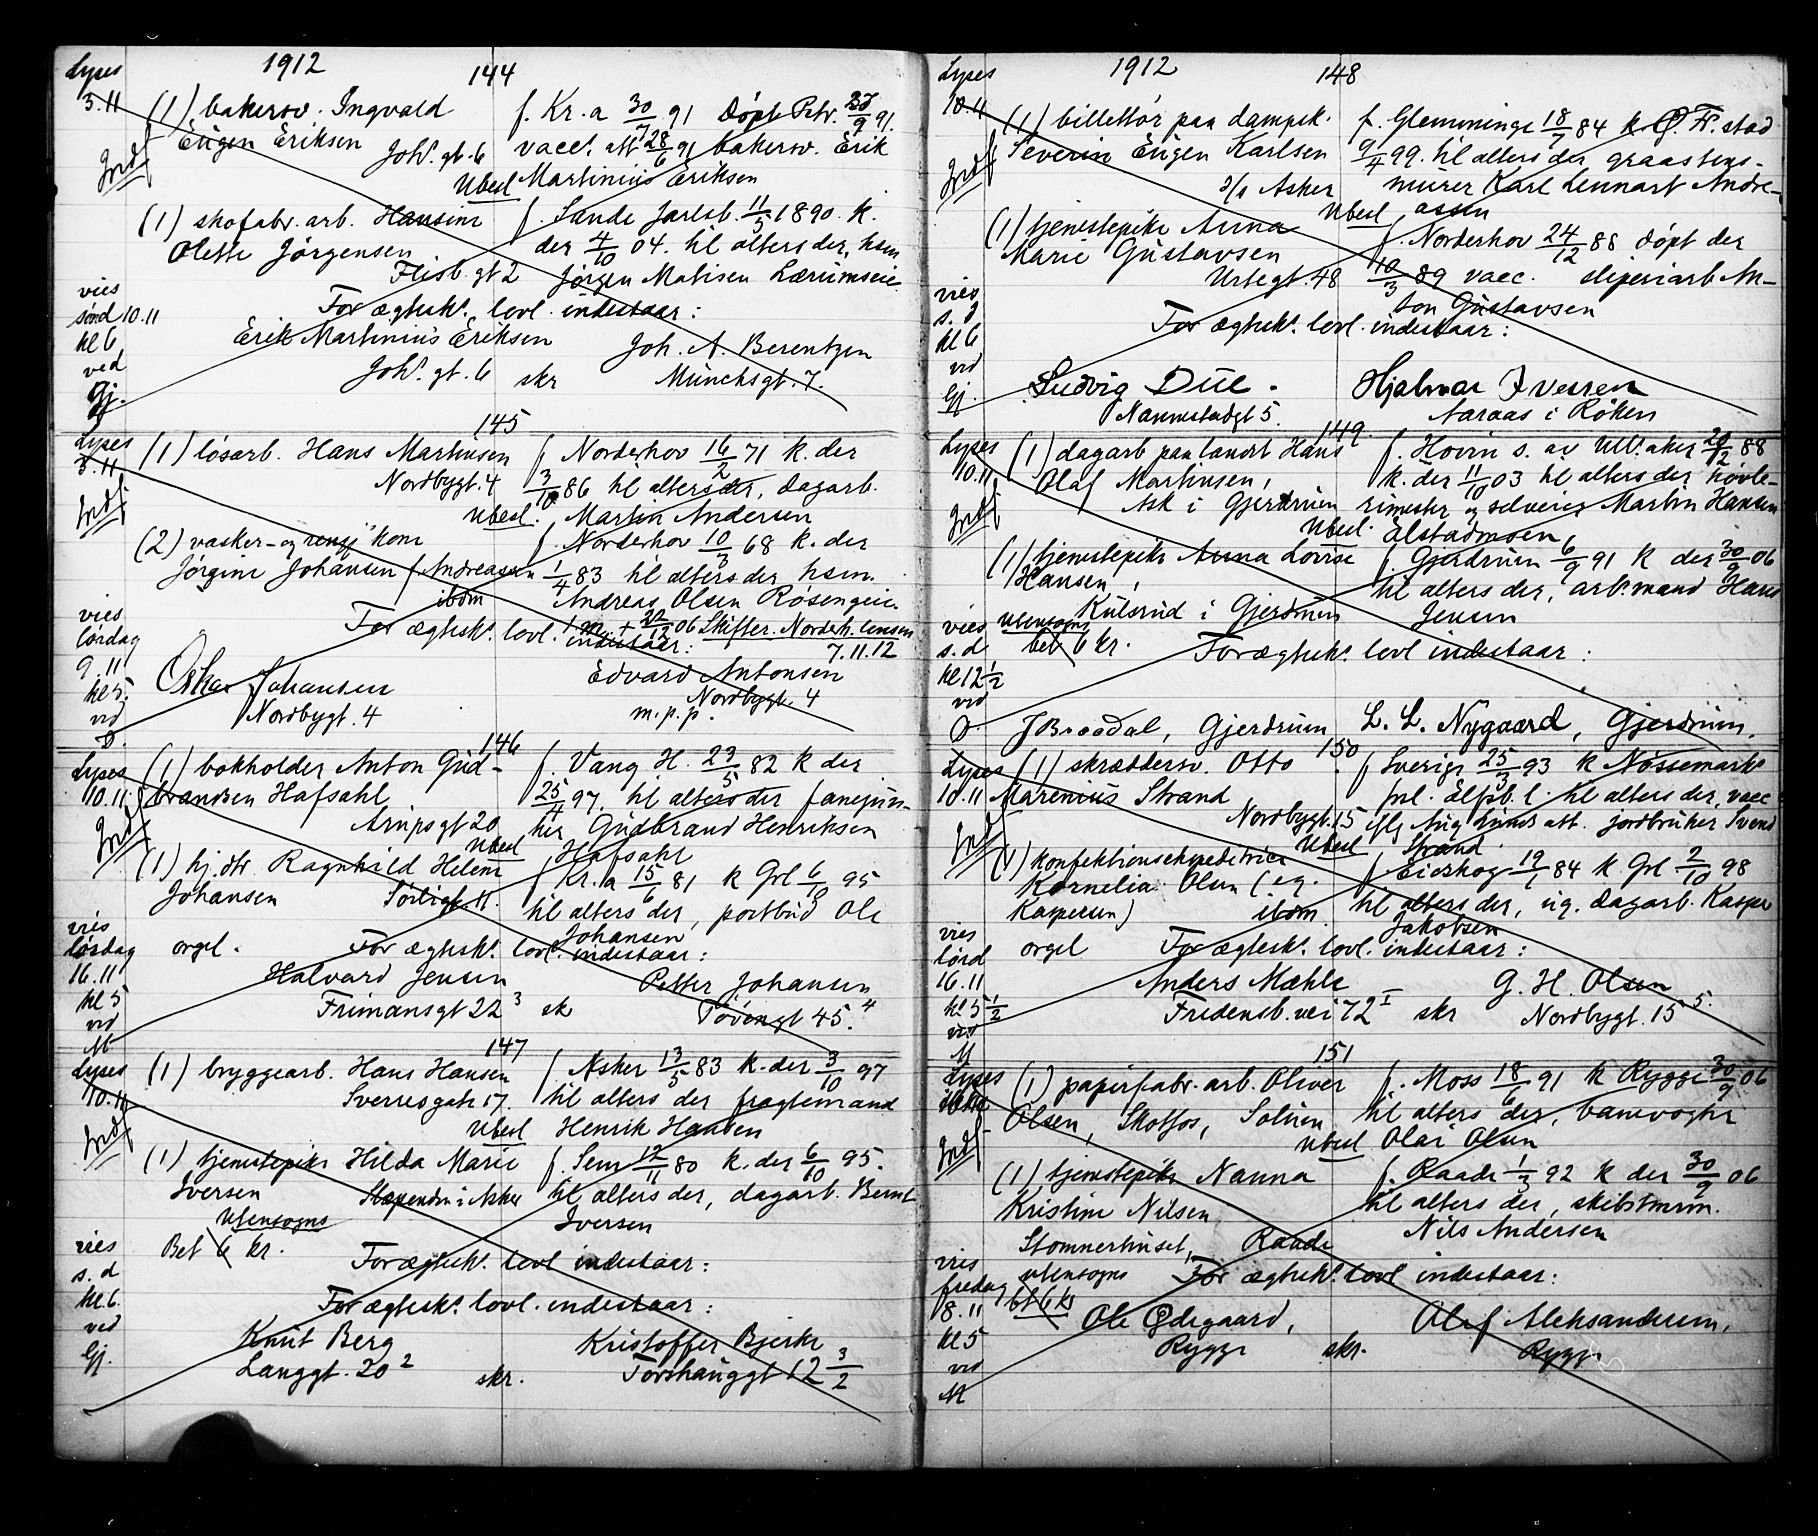 1912
144
Lyses
3.11
Indf
(1) bakersv. Ingvald
Eugen Eriksen
Joh<sup>s</sup>. gt. 6
Ubesl
f. Kr.a 30/7 91 døpt Petr. 27/9 91.
vacc. att 28/6 91 bakersv. Erik
Martinius Eriksen
(1) skofabr. arb. Hansine
Olette Jørgensen
Flisb. gt 2
f. Sande Jarlsb. 11/5 1890. k.
der 4/10 04. til alters der, hsm
Jørgen Matisen Lærumseie
vies
sønd 10.11
kl 6
ved
Gj.
For ægtesk<sup>s</sup>. lovl. indestaar:
Erik Martinius Eriksen
Joh<sup>s</sup>. gt. 6
skr
Joh. A. Berentzen
Münchsgt. 7.
145
Lyses
3.11
Indf
(1) løsarb. Hans Martinsen
Nordbygt. 4
Ubesl.
f. Norderhov 16/2 71 k. der
3/10 86 til alters der, dagarb.
Martin Andersen
(2) vasker- og rengj kone
Jørgine Johansen f. Andreassen
ibdm
f. Norderhov 10/3 68 k. der
1/4 83 til alters der hsm.
Andreas Olsen Røsengeie
1 m. + 22/12 06 Skifter. Norderh. Lensm
7.11.12
vies
lørdag
9.11
kl 5.
vid
For ægtesk<sup>s</sup>. lovl. indestaar:
Oskar Johansen
Nordbygt. 4
Edvard Antonsen
Nordbygt. 4
m.p.p.
146
Lyses
10.11
Indf
(1) bokholder Anton Gud-
brandsen Hafsahl
Arupsgt 20
Ubesl
f. Vang H. 23/5 82 k der
25/4 97. til alters der fanejun-
ker Gudbrand Henriksen
Hafsahl
(1) hj. dtr Ragnhild Helene
Johansen
Sørligt. 11.
f Kr.a 15/6 81 k Grl 6/10 95
til alters der, postbud Ole
Johansen
vies
lørdag
16.11
kl 5
vid
M
orgel.
For ægtesk<sup>s</sup>. lovl. indestaar:
Halvard Jensen
Frimansgt 22 <sup>3</sup>
sk
Petter Johansen
Tøyengt 45. <sup>4</sup>
147
Lyses
10.11
Indf
(1) bryggearb. Hans Hansen
Sverresgate 17.
Ubesl
f Asker 13/5 83 k. der 3/10 97
til alters der fragtemand
Henrik Hansen
(1) tjenestepike Hilda Marie
Iversen
Stæpenden i Asker
Utensogns
Bet 6 kr.
f. Sem 12/11 80 k. der 6/10 95.
til alters der, dagarb. Bernt
Iversen
vies
s. d
kl 6.
ved
Gj.
For ægtesk<sup>s</sup>. lovl indestaar:
For ægtesk<sup>s</sup>. lovl. indestaar:
Knut Berg
Langgt. 20 <sup>2</sup>
skr.
Kristoffer Bjerke
Torshauggt 12 3/2
1912
148
Lyses
10.11
Indf
(1) billettør paa dampsk.
Severin Eugen Karlsen
D/S Asker
Ubesl
f. Glemminge 18/7 84 k. Ø. Fr.stad
9/4 99. til alters der, graastens-
murer Karl Lennart Andre-
assen
(1) tjenestepike Anna
Marie Gustavsen
Urtegt. 48
f. Norderhov 24/12 88 døpt der
10/3 89 vacc. sliperiarb An-
ton Gustavsen
vies
s. d
kl 6
vid
Gj.
For ægtesk<sup>s</sup>. lovl. indestaar:
Ludvig Due.
Nannestadgt 5.
Hjalmar Iversen
Aaraas i Røken
149.
Lyses
10.11
Indf
(1) dagarb paa landet Hans
Olaf Martinsen,
Ask i Gjerdrum
Ubesl.
f. Hovin s. av Ull.aker 29/12 88
k. der 11/10 03 til alters der høvle-
rimester og selveier Martin Hansen
Elstadmoen,
(1) tjenestepike Anna Lovise
Hansen,
Kulsrud i Gjerdrum
utensogns
bet 6 kr.
f. Gjerdrum 6/9 91 k der 30/9 06
til alters der, arb.mand Hans
Jensen
vies
s. d
kl 12 1/2
vid
O
For ægtesk<sup>s</sup>. lovl indestaar:
J Braadal, Gjerdrum
L. L. Nygaard, Gjerdrum.
150
Lyses
10.11
Indf
(1) skræddersv. Otto
Marenius Strand
Nordbygt. 15
Ubesl
f Sverige 25/3 93 k Nössemark
til alters der, vacc
jordbruker Svend
Strand.
(1) konfektionschneiderice
Kornelia Olsen (eg.
Kaspersen)
ibdm
f Eidskog 19/1 84 k Grl 2/10 98
til alters der, ug. dagarb. Kasper
Jakobsen
vies
lørd
16.11
kl. 5 1/2
vid
M
orgel
For ægtesk<sup>s</sup>. lovl. indestaar:
Anders Mæhle
Fredensb. vei 72 <sup>I</sup>
skr
G. H. Olsen
Nordbygt. 15 <sup>5.</sup>
151
Lyses
Indf
(1) papirfabr. arb. Oliver
Olsen, Skotfos, Solum
Ubesl
f. Moss 18/6 91 k Rygge 30/9 06
til alters der, banevogter
Olai Olsen
(1) tjenestepike Nanna
Kristine Nilsen
Stomnerhuset, Raade
utensogns
bet 6 kr
f. Raade 1/3 92 k der 30/9 06
til alters der, skibstmrm.
Nils Andersen
vies
fredag
8.11
kl 5
vid
M
For ægtesk<sup>s</sup>. lovl indestaar:
Ole Ødegaard,
Rygge
skr.
Olaf Aleksandersen,
Rygge